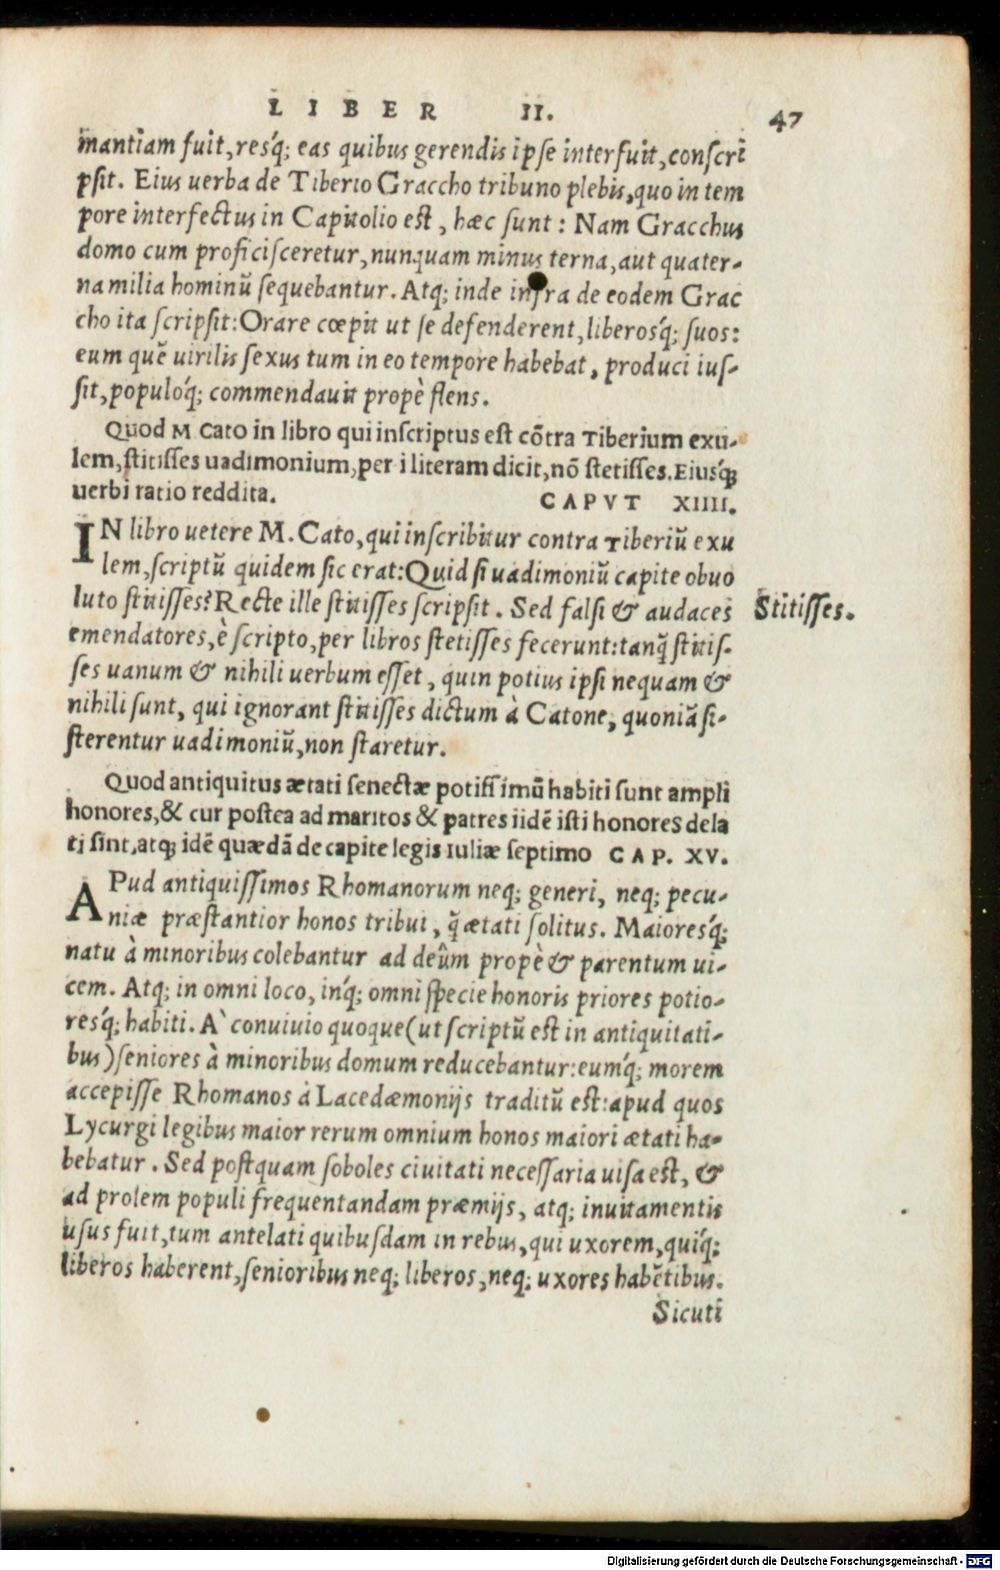 LIBER II. 47
mantiam fuit, resq́; eas quibus gerendis ipse interfuit, conscri
psit. Eius uerba de Tiberio Graccho tribuno plebis, quo in tem
pore interfectus in Capitolio est, hæc sunt: Nam Gracchus
domo cum proficisceretur, nunquam minus terna, aut quater-
na milia hominū sequebantur. Atq; inde infra de eodem Grac
cho ita scripsit: Orare cœpit ut se defenderent, liberosq́; suos:
eum quē uirilis sexus tum in eo tempore habebat, produci ius-
sit, populoq́; commendauit propè flens.
Quod M Cato in libro qui inscriptus est cōtra Tiberium exu-
lem, stitisses uadimonium, per i literam dicit, nō stetisses. Eiusq́;
uerbi ratio reddita. CAPVT XIIII.
IN libro uetere M. Cato, qui inscribitur contra Tiberiū exu
lem, scriptū quidem sic erat: Quid si uadimoniū capite obuo
luto stitisses? Recte ille stitisses scripsit. Sed falsi & audaces
Stitisses.
emendatores, è scripto, per libros stetisses fecerunt: tanq̄ stitis-
ses uanum & nihili uerbum esset, quin potius ipsi nequam &
nihili sunt, qui ignorant stitisses dictum à Catone, quoniā si-
sterentur uadimoniū, non staretur.
Quod antiquitus ætati senectæ potissimū habiti sunt ampli
honores, & cur postea ad maritos & patres iidē isti honores dela
ti sint, atq; idē quædā de capite legis Iuliæ septimo CAP. XV.
APud antiquissimos Rhomanorum neq; generi, neq; pecu-
niæ præstantior honos tribui, q̄ ætati solitus. Maioresq́;
natu à minoribus colebantur ad deûm propè & parentum ui-
cem. Atq; in omni loco, inq́; omni specie honoris priores potio-
resq́; habiti. A` conuiuio quoque (ut scriptū est in antiquitati-
bus) seniores à minoribus domum reducebantur: eumq́; morem
accepisse Rhomanos à Lacedæmonijs traditū est: apud quos
Lycurgi legibus maior rerum omnium honos maiori ætati ha-
bebatur. Sed postquam soboles ciuitati necessaria uisa est, &
ad prolem populi frequentandam præmijs, atq; inuitamentis
usus fuit, tum antelati quibusdam in rebus, qui uxorem, quiq́;
liberos haberent, senioribus neq; liberos, neq; uxores habētibus.
Sicuti
Digitalisierung gefördert durch die Deutsche Forschungsgemeinschaft - DFG